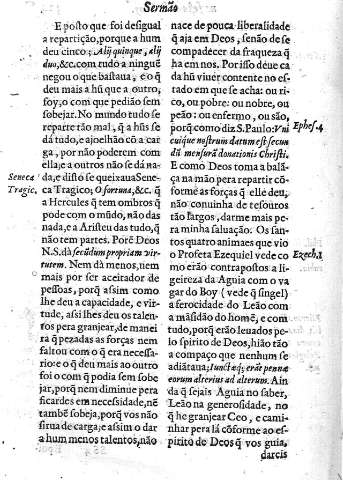 Sermão
E posto que foi desigual
a repartição, porque a hum
deu cinco; Alij quinque, alij
duo, &c. com tudo a ninguẽ
negou o que bastaua, e o q̃
deu mais a hũ que a outro,
foy, o com que pedião sem
sobejar. No mundo tudo se
reparte tão mal, q̃ a hũs se
dá tudo, e ajoelhão cõ a car
ga, por não poderem com
ella; e a outros não se dá na-
da, e disto se queixaua Sene-
ca Tragico; O fortuna, &c. q̃
a Hercules q̃ tem ombros q̃
pode com o mũdo, não das
nada, e a Aristeu das tudo, q̃
não tem partes. Porẽ Deos
N.S. dà secũdum propriam vir-
tutem. Nem dà menos, nem
mais por ser aceitador de
pessoas, porq̃ assim como
lhe deu a capacidade, e vir-
tude, assi lhes deu os talen-
tos pera granjear, de manei
ra q̃ pezadas as forças nem
faltou com o q̃ era necessa-
rio: e o q̃ deu mais ao outro
foi o com q̃ podia sem sobe
jar, porq̃ nem diminue pera
ficardes em necessidade, nẽ
tambẽ sobeja, porq̃ vos não
sirua de carga; e assim o dar
a hum menos talentos, não
Seneca
Tragic.
nace de pouca liberalidade
q̃ aja em Deos, senão de se
compadecer da fraqueza q̃
ha em nos. Por isso deue ca
da hũ viuer contente no es-
tado em que se acha: ou ri-
co, ou pobre: ou nobre, ou
peão: ou enfermo, ou são,
porq̃ como diz S. Paulo: Vni
cuique nostrum datum est secun
dũ mensurã donationis Christi.
E como Deos toma a balã-
ça na mão pera repartir cõ-
forme as forças q̃ elle deu,
não conuinha de tesouros
tão largos, darme mais pe-
ra minha saluação. Os san-
tos quatro animaes que vio
o Profeta Ezequiel vede co
mo erão contrapostos a li-
geireza da Aguia com o va
gar do Boy (vede q̃ singel)
a ferocidade do Leão com
a mãsidão do homẽ, e com
tudo, porq̃ erão leuados pe-
lo spirito de Deos, hião tão
a compaço que nenhum se
adiãtaua; Iunctæq; erãt pennæ
eorum alterius ad alterum. Ain
da q̃ sejais Aguia no saber,
Leão na generosidade, no
q̃ he granjear Ceo, e cami-
nhar pera lá cõforme ao es-
pirito de Deos q̃ vos guia,
darcis
Ephes. 4
Ezech. 1